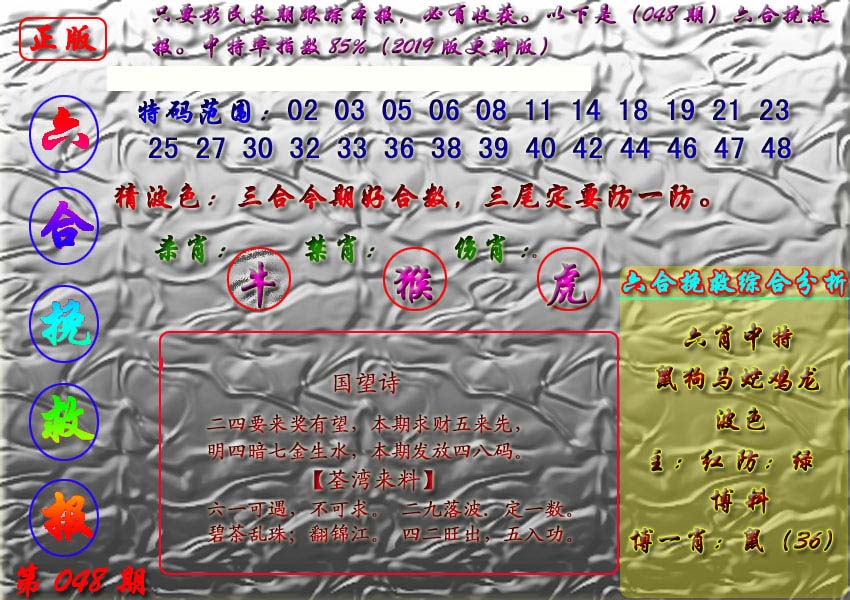 正版
只要彩民长期跟踪本报，必有收获。以下是（048期）六合挽救
报。中特率指数85%（2019版更新版）
六合挽救报
第048期
特码范围：02 03 05 06 08 11 14 18 19 21 23
25 27 30 32 33 36 38 39 40 42 44 46 47 48
猜波色：三合今期好合数，三尾定要防一防。
杀肖： 禁肖： 伤肖：。
牛 猴 虎
国望诗
二四要来奖有望，本期求财五来先，
明四暗七金生水，本期发放四八码。
【荃湾来料】
六一可遇，不可求。 二九落波．定一数。
碧茶乱珠；翻锦江。 四二旺出，五入功。
六合挽救综合分析
六肖中特
鼠狗马蛇鸡龙
波色
主：红 防：绿
博料
博一肖：鼠（36）